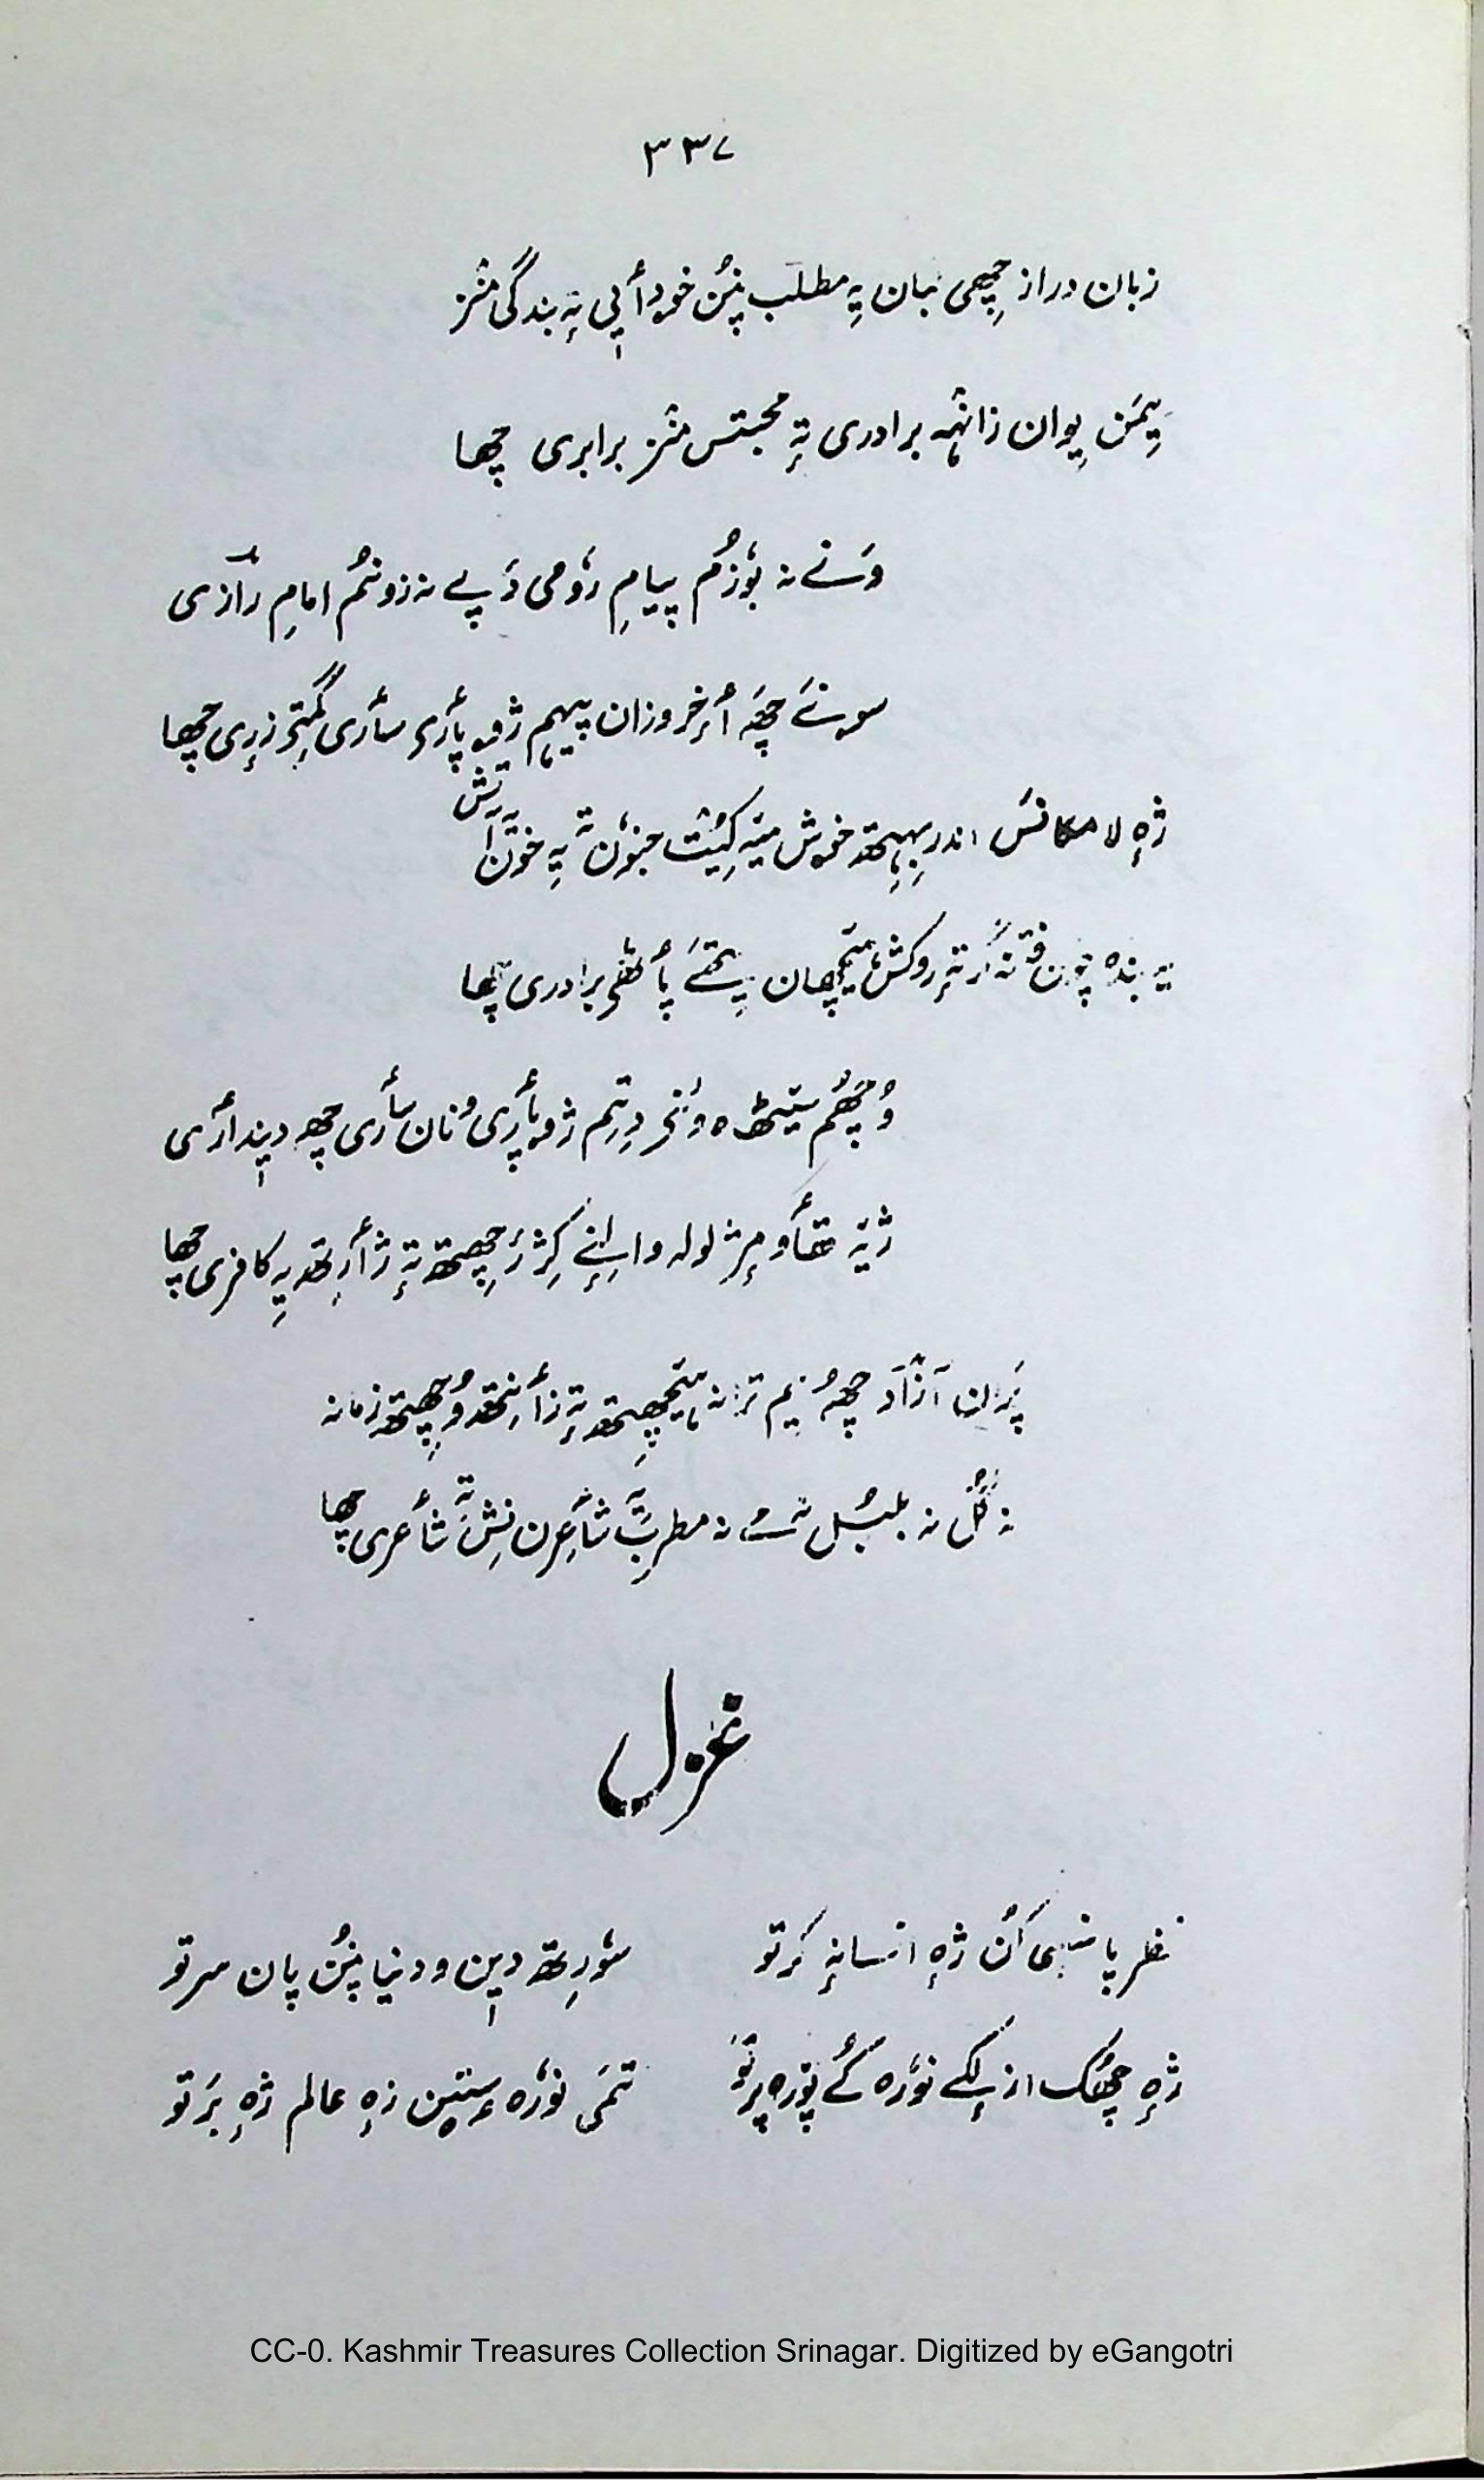 ۳۳۷
زبان دراز چھِی بیان یہِ مطلب پنُن خودٲیی تہٕ بندگی منٛز
یِیمَن یِوان زانٛہہ برادری تہٕ محبتس منٛز برابری چھا
وَنے نہ بوٗزُم پیامِ روٗمی دَپے نہ زونُم امامِ رازی
سونے چھَہ أخر وزان پیہم ژوپٲری سٲری گمٕتۍ زری چھا
ژہٕ لا مکانس اندر بِہِتھ خوش میٚہ کیُت جنوٗن تہٕ یہِ خوٗن آتش
یہ بندہ چون نہ کرتہٕ روکش پٔتھۍ برادری چھا
وُچھُم سیٹھاہ ژوپٲری ونان سٲری چھِ دیندٲری
ژیٚہ لولہ تہٕ یہِ کافری چھا
پَران آزاد چھُہ یم ترانہ ہیٚچھِتھ تہٕ زٲنِتھ وُچھِتھ زمانہ
نہ گُل نہ بلبُل نہ مے نہ مطرب یہ شٲعِرن نِش تہٕ شٲعری چھا
غزل
نظر پانسٕی کُن ژہٕ انسانہٕ کرتو
سوٗرِتھ دین و دنیا پنُن پان سرتو
ژہٕ چھُک ازلکے نوٗرہ کُے پوٗرہ پرتو
تمی نوٗرہ سٟتین زہٕ عالم ژہٕ برتو
CC-0. Kashmir Treasures Collection Srinagar. Digitized by eGangotri